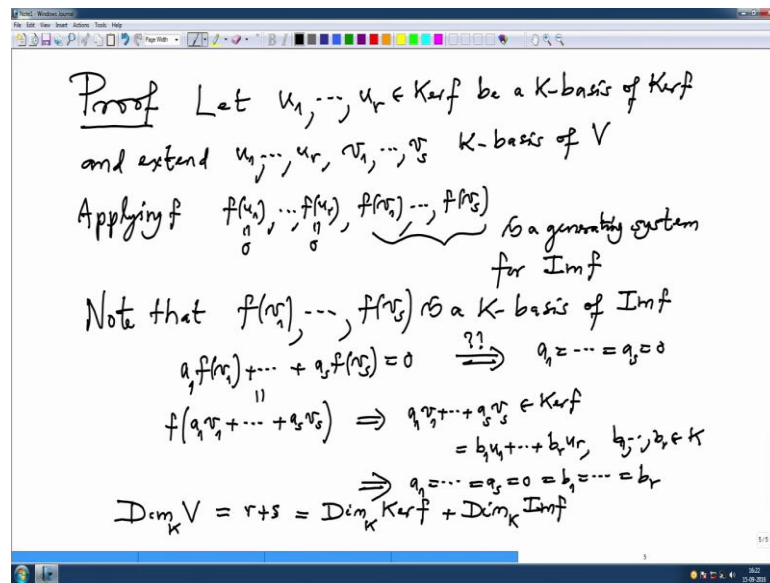 Note1 - Windows Journal
File Edit View Insert Actions Tools Help
Page Width
Proof Let u₁, ..., uᵣ ∈ Ker f be a K-basis of Ker f
and extend u₁, ..., uᵣ, v₁, ..., vₛ K-basis of V
Applying f f(u₁), ..., f(uᵣ), f(v₁), ..., f(vₛ) is a generating system
॥ ॥
0 0
for Im f
Note that f(v₁), ..., f(vₛ) is a K-basis of Im f
a₁f(v₁) + ... + aₛf(vₛ) = 0 ⇒ a₁ = ... = aₛ = 0
??
॥
f(a₁v₁ + ... + aₛvₛ) ⇒ a₁v₁ + ... + aₛvₛ ∈ Ker f
= b₁u₁ + ... + bᵣuᵣ, b₁, ..., bᵣ ∈ K
⇒ a₁ = ... = aₛ = 0 = b₁ = ... = bᵣ
Dim_K V = r+s = Dim_K Ker f + Dim_K Im f
5/5
5
16:22
15-09-2018